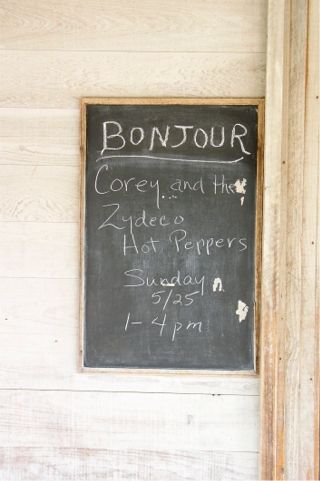 BONJOUR
Corey and the
Zydeco
Hot Peppers
Sunday
5/25
1-4pm